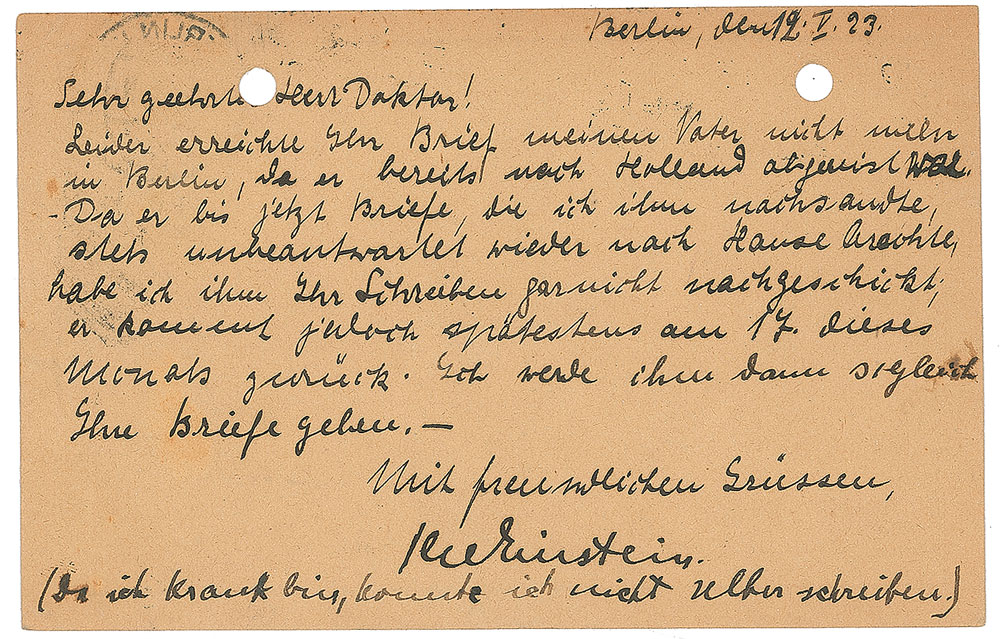 Berlin, den 12. I. 23.
Sehr geehrter Herr Doktor!
Leider erreichte Ihr Brief meinen Vater nicht mehr
in Berlin, da er bereits nach Holland abgereist war.
- Da er bis jetzt Briefe, die ich ihm nachsandte,
stets unbeantwortet wieder nach Hause brachte,
habe ich ihm Ihr Schreiben garnicht nachgeschickt;
er kommt jedoch spätestens am 17. dieses
Monats zurück. Ich werde ihm dann sogleich
Ihre Briefe geben. —
Mit freundlichen Grüssen,
Ilse Einstein.
(Da ich krank bin, konnte ich nicht selber schreiben.)